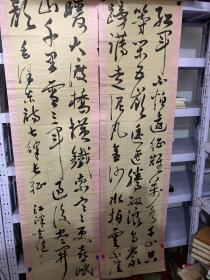 紅軍不怕遠征難萬水千山只
等閑五嶺逶迤騰細浪烏蒙
磅礴走泥丸金沙水拍雲崖
暖大渡橋橫鐵索寒更喜岷
山千里雪三軍過後盡開
顏 毛澤東詩七律長征